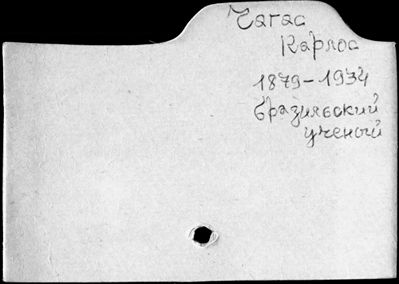 Чагас
Карлос
1879-1934
бразильский
ученый